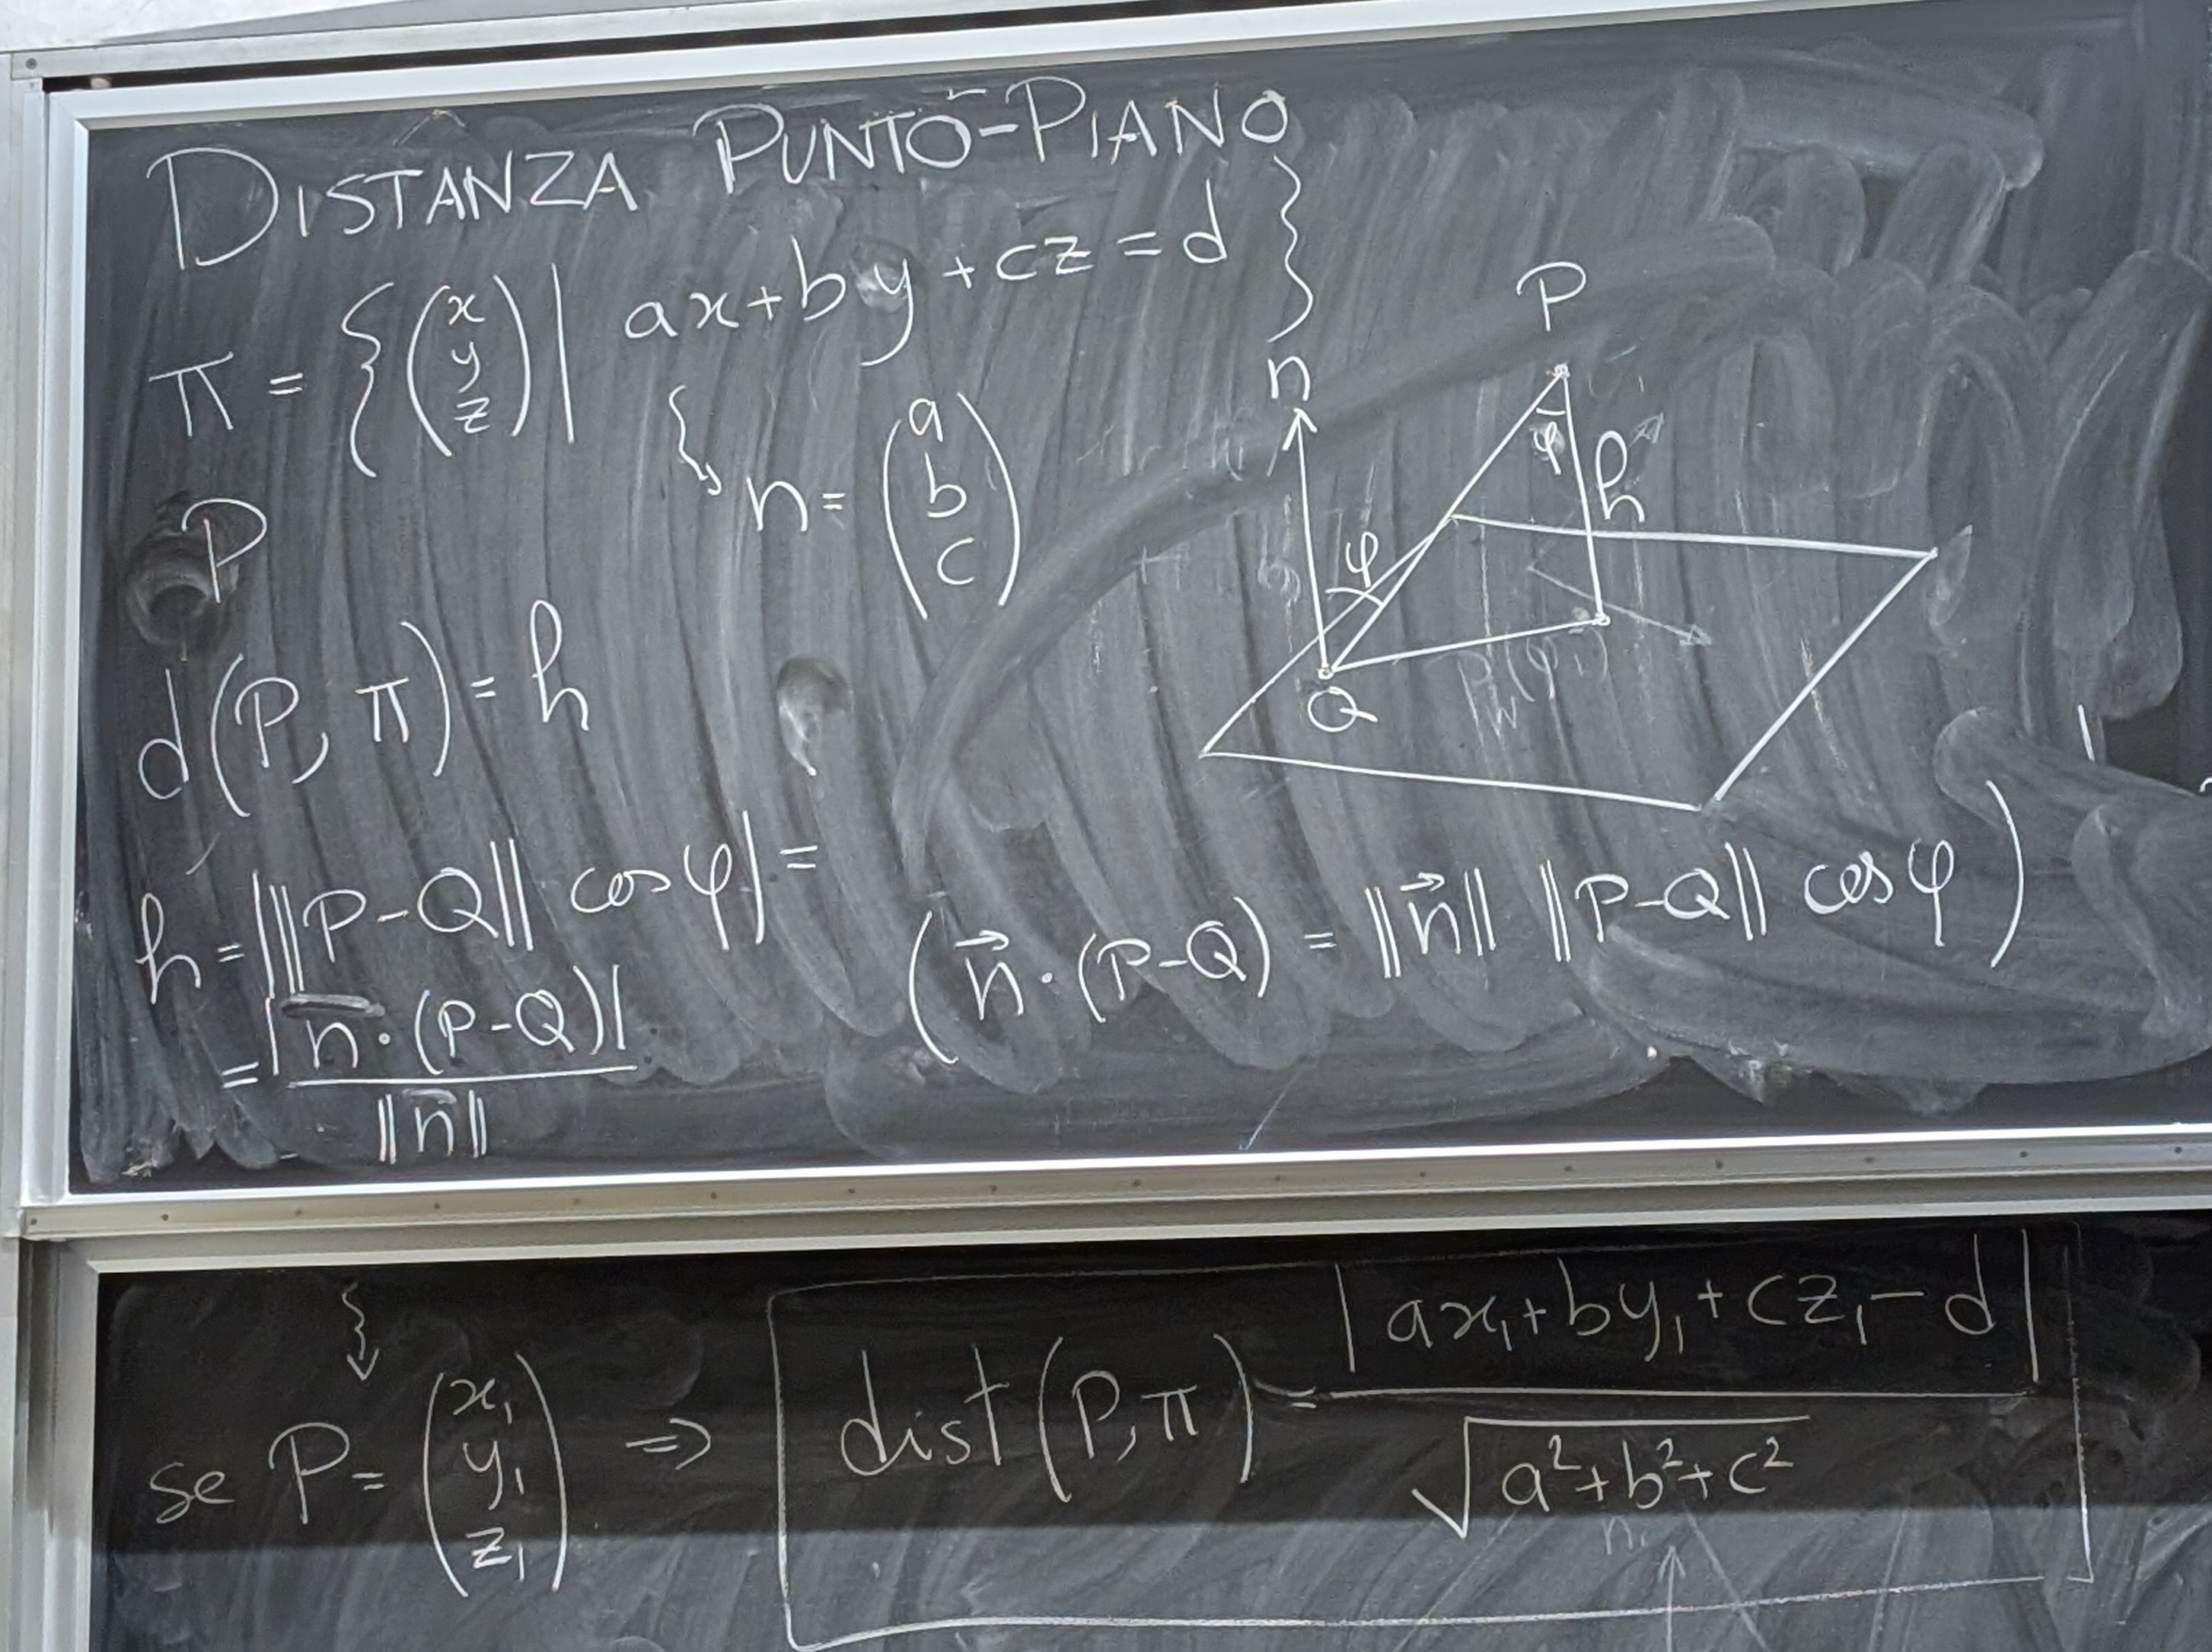 DISTANZA PUNTO-PIANO
π = {(x y z) | ax+by+cz=d}
n = (a b c)
P
d(P, π) = h
h = |‖P-Q‖ cos φ| =
= |n⃗·(P-Q)| / ‖n⃗‖
(n⃗·(P-Q) = ‖n⃗‖ ‖P-Q‖ cos φ)
P
n
φ
h
φ
Q
se P = (x₁ y₁ z₁) ⇒ dist(P,π) = |ax₁+by₁+cz₁-d| / √(a²+b²+c²)